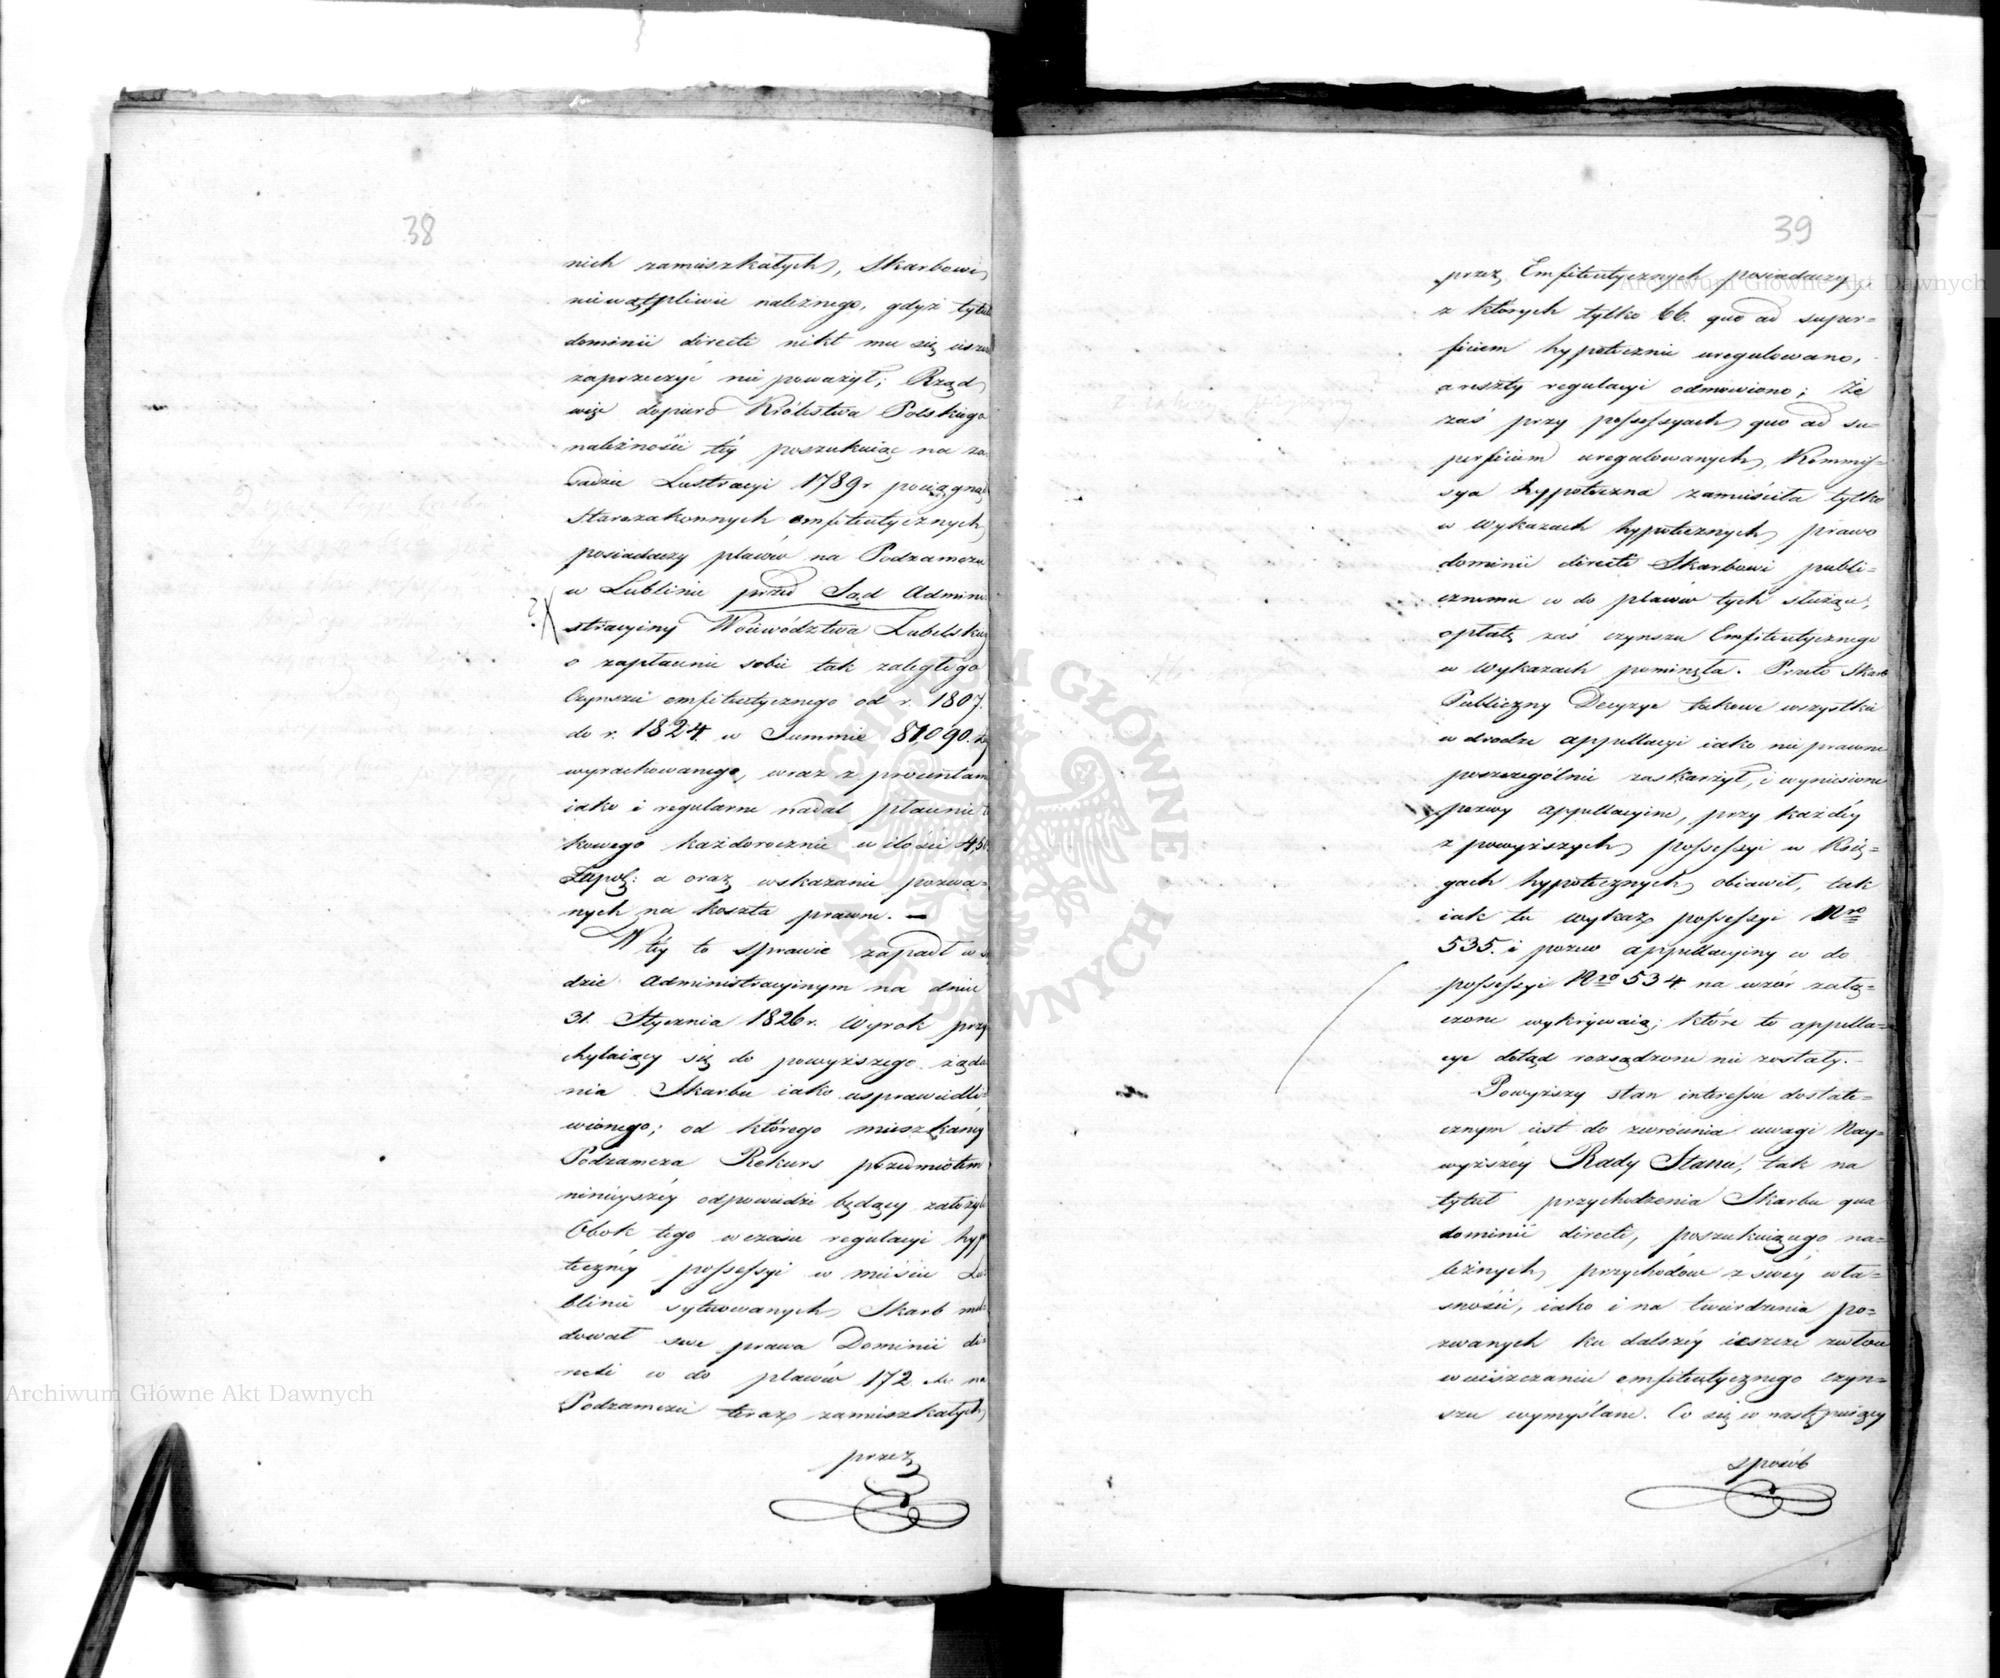 38
nich zamieszkałych, Skarbowi
niewątpliwie należnego, gdyż tytułu
dominii directi nikt mu się
zaprzeczyć nie poważył; Rząd
więc dopiero Królestwa Polskiego
należności téy poszukuiąc na za-
sadzie Lustracyi 1789 r. pociągnął
Starozakonnych emfiteutycznych
posiadaczy placów na Podzamczu
w Lublinie przed Sąd Admini-
stracyiny Woiewództwa Lubelskiego
o zapłacenie sobie tak zaległego
Czynszu emfiteutycznego od r. 1807.
do r. 1824. w Summie 81,090.
wyrachowanego, wraz z procentami
iako i regularne nadal płacenie
kowego każdorocznie w ilości
Złpol: a oraz wskazanie pozwa-
nych na koszta prawne. —
W téy to sprawie zapadł w Są-
dzie Administracyinym na dniu
31. Stycznia 1826 r. Wyrok przy-
chylaiący się do powyższego żąda-
nia Skarbu iako usprawiedli-
wionego; od którego mieszkańcy
Podzamcza Rekurs przedmiotem
ninieyszéy odpowiedzi będący założyli
Obok tego w czasie regulacyi hypo-
tecznéy possessyi w mieście Lu-
blinie sytuowanych Skarb mel-
dował swe prawa Dominii di-
recti co do placów 172. na
Podzamczu teraz zamieszkałych
przez
39
przez Emfiteutycznych posiadaczy
z których tylko 66. quo ad super-
ficiem hypotecznie uregulowano,
a reszty regulacyi odmówiono; że
zaś przy possessyach quo ad su-
perficiem uregulowanych, Kommis-
sya hypoteczna zamieściła tylko
w wykazach hypotecznych prawo
dominii directi Skarbowi publi-
cznemu co do placów tych służące,
opłatę zaś czynszu Emfiteutycznego
w wykazach pominęła. Przeto Skarb
Publiczny Decyzye takowe wszystkie
w drodze appellacyi iako nie prawne
poszczególnie zaskarżył, i wyniesione
pozwy appellacyine, przy każdéy
z powyższych possessyi w Księ-
gach hypotecznych obiawił, tak
iak tu wykaz possessyi Nro
535. i pozew appellacyiny co do
possessyi Nro 534 na wzór załą-
czone wykrywaią; które to appella-
cye dotąd rozsądzone nie zostały.-
Powyższy stan interessu dostate-
cznym iest do zwrócenia uwagi Nay-
wyższéy Rady Stanu, tak na
tytuł przychodzenia Skarbu qua
dominii directi, poszukuiącego na-
leżnych przychodów z swéy wła-
sności, iako i na twierdzenia po-
zwanych ku dalszéy ieszcze zwłoce
w uiszczaniu emfiteutycznego czyn-
szu wymyślane. Co się w następuiący
sposób
Archiwum Główne Akt Dawnych
Archiwum Główne Akt Dawnych
ARCHIWUM GŁÓWNE AKT DAWNYCH